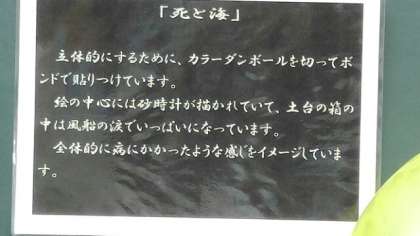 「死と海」
立体的にするために、カラーダンボールを切ってボ
ンドで貼りつけています。
絵の中心には砂時計が描かれていて、土台の箱の
中は風船の涙でいっぱいになっています。
全体的に病にかかったような感じをイメージしていま
す。